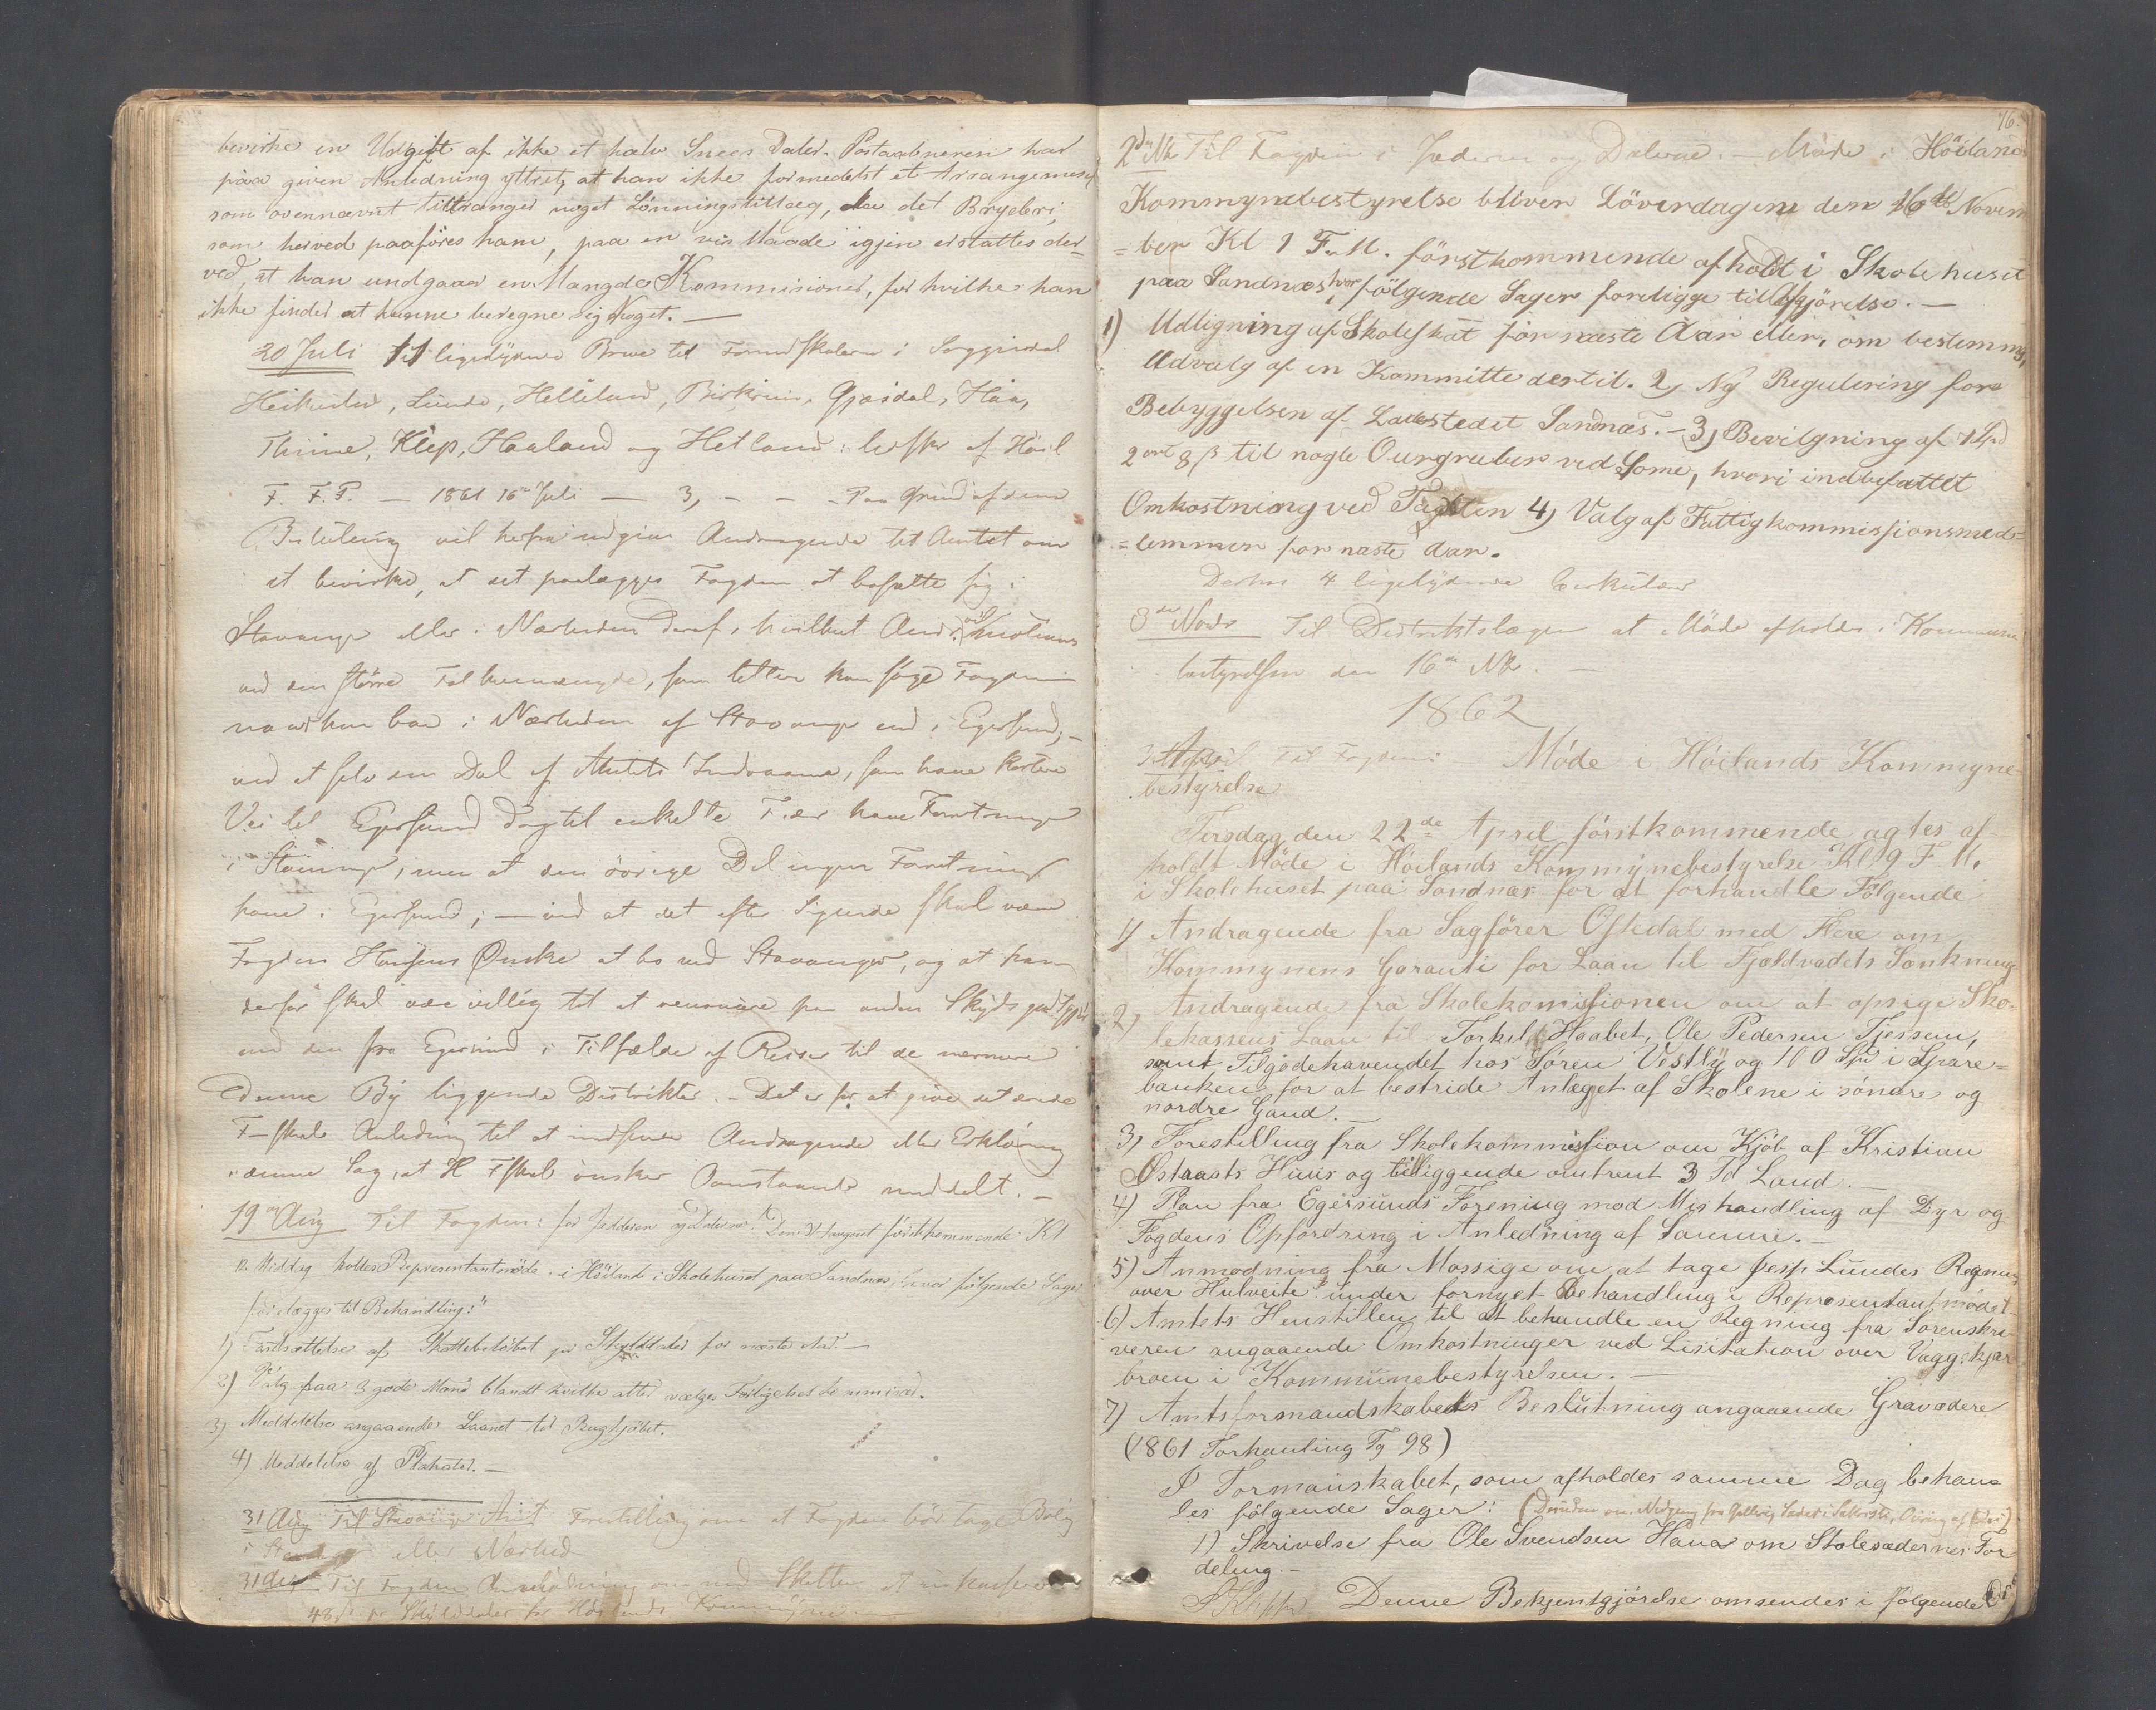 bevirke en Udgift af ikke et halv Snees Daler. Postaabneren har
paa given Anledning yttret, at han ikke formedelst et Arrangement
som ovennævnt tiltrænger noget Lønningstillæg, da det Bryderi,
som herved paaføres ham, paa en vis Maade igjen erstattes der-
ved, at han undgaar en Mængde Kommisioner, for hvilke han
ikke finder at kunne beregne sig Noget. —
20 Juli 11 ligelydende Breve til Formdskaberne i Soggendal
Heskestad, Lunde, Helleland, Birkrem, Gjæsdal, Haa,
Thime, Klep, Haaland og Hetland:
F. F. P. — 1861 16 Juli — 3, - - - Paa Grund af denne
Beslutning vil herfra indgives Andragende til Amtet om
at bevirke, at det paalægges Fogden at bosætte sig i
Stavanger eller i Nærheden deraf, hvilket
ved den større Folkemængde, som lettere kan søge Fogden
naar han bor i Nærheden af Stavanger end i Egersund; —
ved at selv den Del af Amtets Indvaanere, som have kortere
Vei til Egersund dog til enkelte Tider have Forretninger
i Stavanger, men at den øvrige Del ingen Forretninger
have i Egersund; — ved at det efter Sigende skal være
Fogden Hansens Ønske at bo ved Stavanger, og at han
derfor skal være villig til at renoncere paa anden Skydsgodtgj
end den fra Egersund i Tilfælde af Reiser til de nærmere
denne By liggende Distrikter. — Det er for at give det ærede
F-skab Anledning til at indsende Andragende eller Erklæring
i denne Sag, at H Fskab ønsker Ovenstaaende meddelt. —
19 Aug Til Fogden: for Jædderen og Dalerne. Den August førstkommende Kl
12 Middag holdes Repræsentantmøde i Høilands i Skolehuset paa Sandnæs, hvor følgende Sager
forelægges til Behandling:"
1) Fastsættelse af Skattebeløbet pr Skylddaler for næste Aar. —
2) Valg paa 3 gode Mænd blandt hvilke atter vælges Forligelseskommisær.
3) Meddelelse angaaende Laanet til Rugkjøbet.
4) Meddelelse af Plakater. —
31 Aug Til Stavanger Amt Forestilling om at Fogden bør tage Bolig
i eller Nærhed
31 Aug Til Fogden Anmodning om med Skatten at
48 pr Skylddaler for Høilands Kommune
76.
2 Nbr Til Fogden i Jæderen og Dalerne. — Møde i Høilands
Kommynebestyrelse bliver Löverdagen den 16de Novem
=ber Kl 9 F. M. førstkommende afholdt i Skolehuset
paa Sandnæs hvor følgende Sager foreligge til Afgjørelse. —
1) Udligning af Skoleskat før næste Aar eller, om bestemmes,
Udvalg af en Kommitte dertil. 2, Ny Regulering fore
Bebyggelsen af Ladestedet Sandnæs. — 3, Bevilgning af 1 Spd
2 ort 8 ß til nogle Ourgruber ved Some, hvori indbefattet
Omkostning ved Taxten 4, Valg af Fattigkommissionsmed=
=lemmer for næste Aar.
Derhos 4 ligelydende Cirkulær
8de Novbr Til Distriktslægen at Møde afholdes i Kommune
bestyrelsen den 16 Nbr. —
1862
3 April Til Fogden: Møde i Höilands Kommyne-
bestyrelse
Tirsdag den 22de April förstkommende agtes af
holdt Møde i Höilands Kommynebestyrelse Kl 9 F. M.
i Skolehuset paa Sandnæs for at forhandle Følgende
1) Andragende fra Sagfører Oftedal med Flere om
Kommynens Garanti for Laan til Fjældvadets Sænkning
2) Andragende fra Skolekomissionen om at opsige Sko-
lekassens Laan til Torkil Haabet, Ole Pedersen Tjessem,
samt Tilgodehavendet hos Søren Vestly og 110 Spd i Spare=
banken for at bestride Anlæget af Skolene i söndre og
nordre Gand. —
3) Forestilling fra Skolekommission om Kjøb af Kristian
Østraats Huus og tilliggende omtrent 3 Td Land. —
4) Plan fra Egersunds Forening mod Mishandling af Dyr og
Fogdens Opfordring i Anledning af Samme. —
5) Anmodning fra Mossige om at tage Jesp Lundes Regning
over Hulveite under fornyet Behandling i Representantmødet
6) Amtets Henstillen til at behandle en Regning fra Sorenskri
veren angaaende Omkostninger ved Lisitation over Vaggskjær
broen i Kommunebestyrelsen. —
7) Amtsformandskabets Beslutning angaaende Gravædere
(1861 Forhanling Pg 98)
I Formanskabet, som afholdes samme Dag behan
les følgende Sager:
1) Skrivelse fra Ole Svendsen Hana om Stolesædernes For
deling. —
Denne Bekjentgjörelse omsendes i følgende